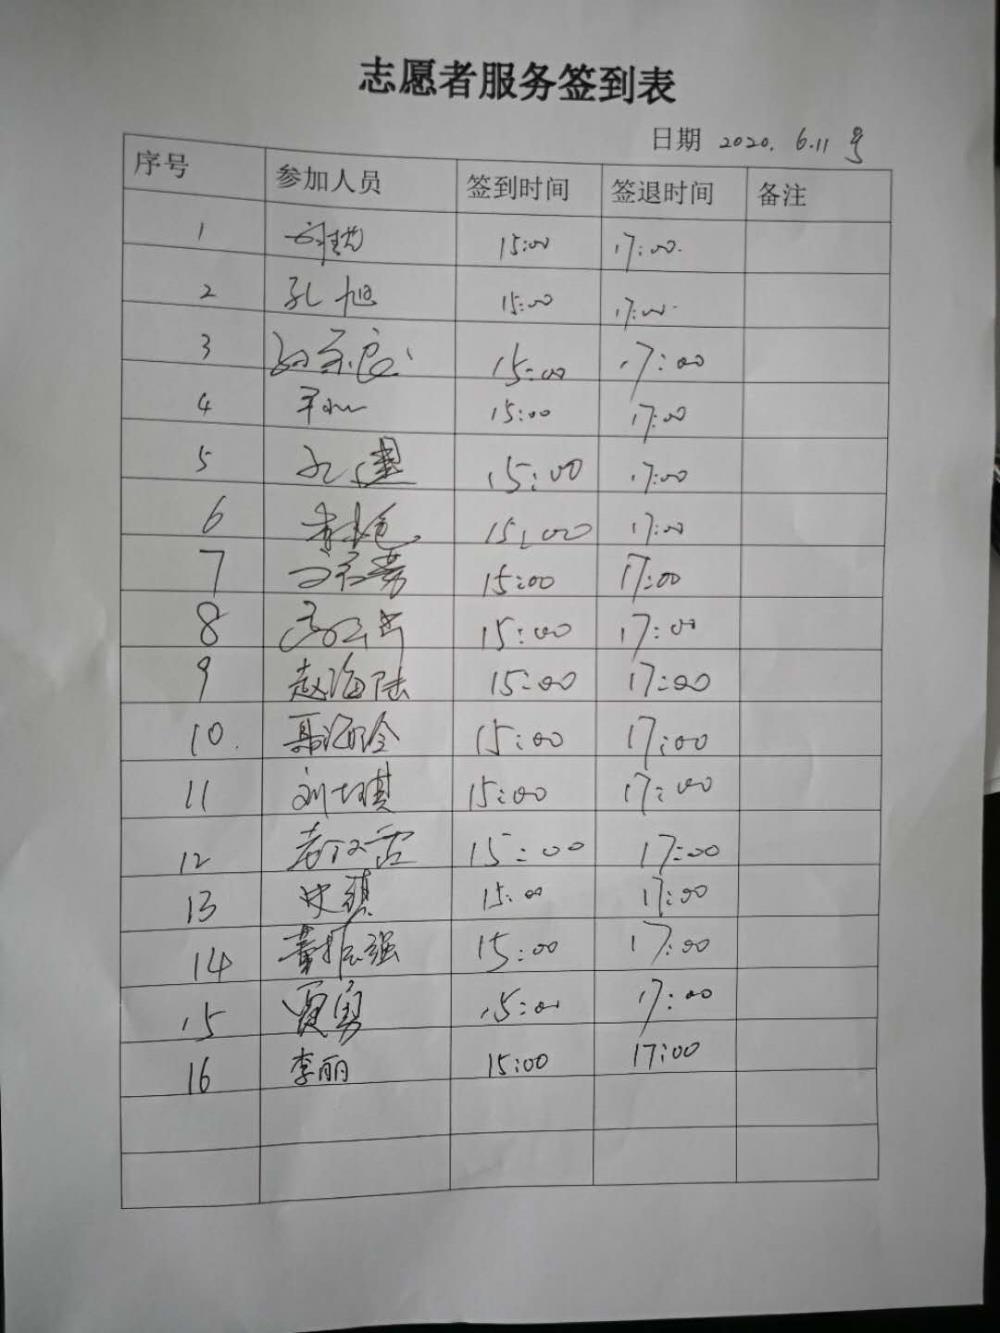 志愿者服务签到表
日期 2020. 6.11号
序号 参加人员 签到时间 签退时间 备注
1 15:00 17:00.
2 孔旭 15:00 17:00.
3 15:00 17:00
4 15:00 17:00
5 孔建 15:00 17:00
6 15:00 17:00
7 15:00 17:00
8 15:00 17:00
9 赵海陆 15:00 17:00
10. 15:00 17:00
11 15:00 17:00
12 15:00 17:00
13 15:00 17:00
14 董振强 15:00 17:00
15 贾勇 15:00 17:00
16 李丽 15:00 17:00